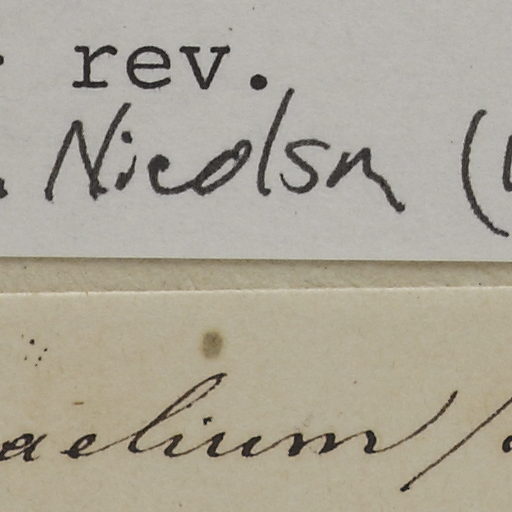 rev.
Nicolson (
aelium